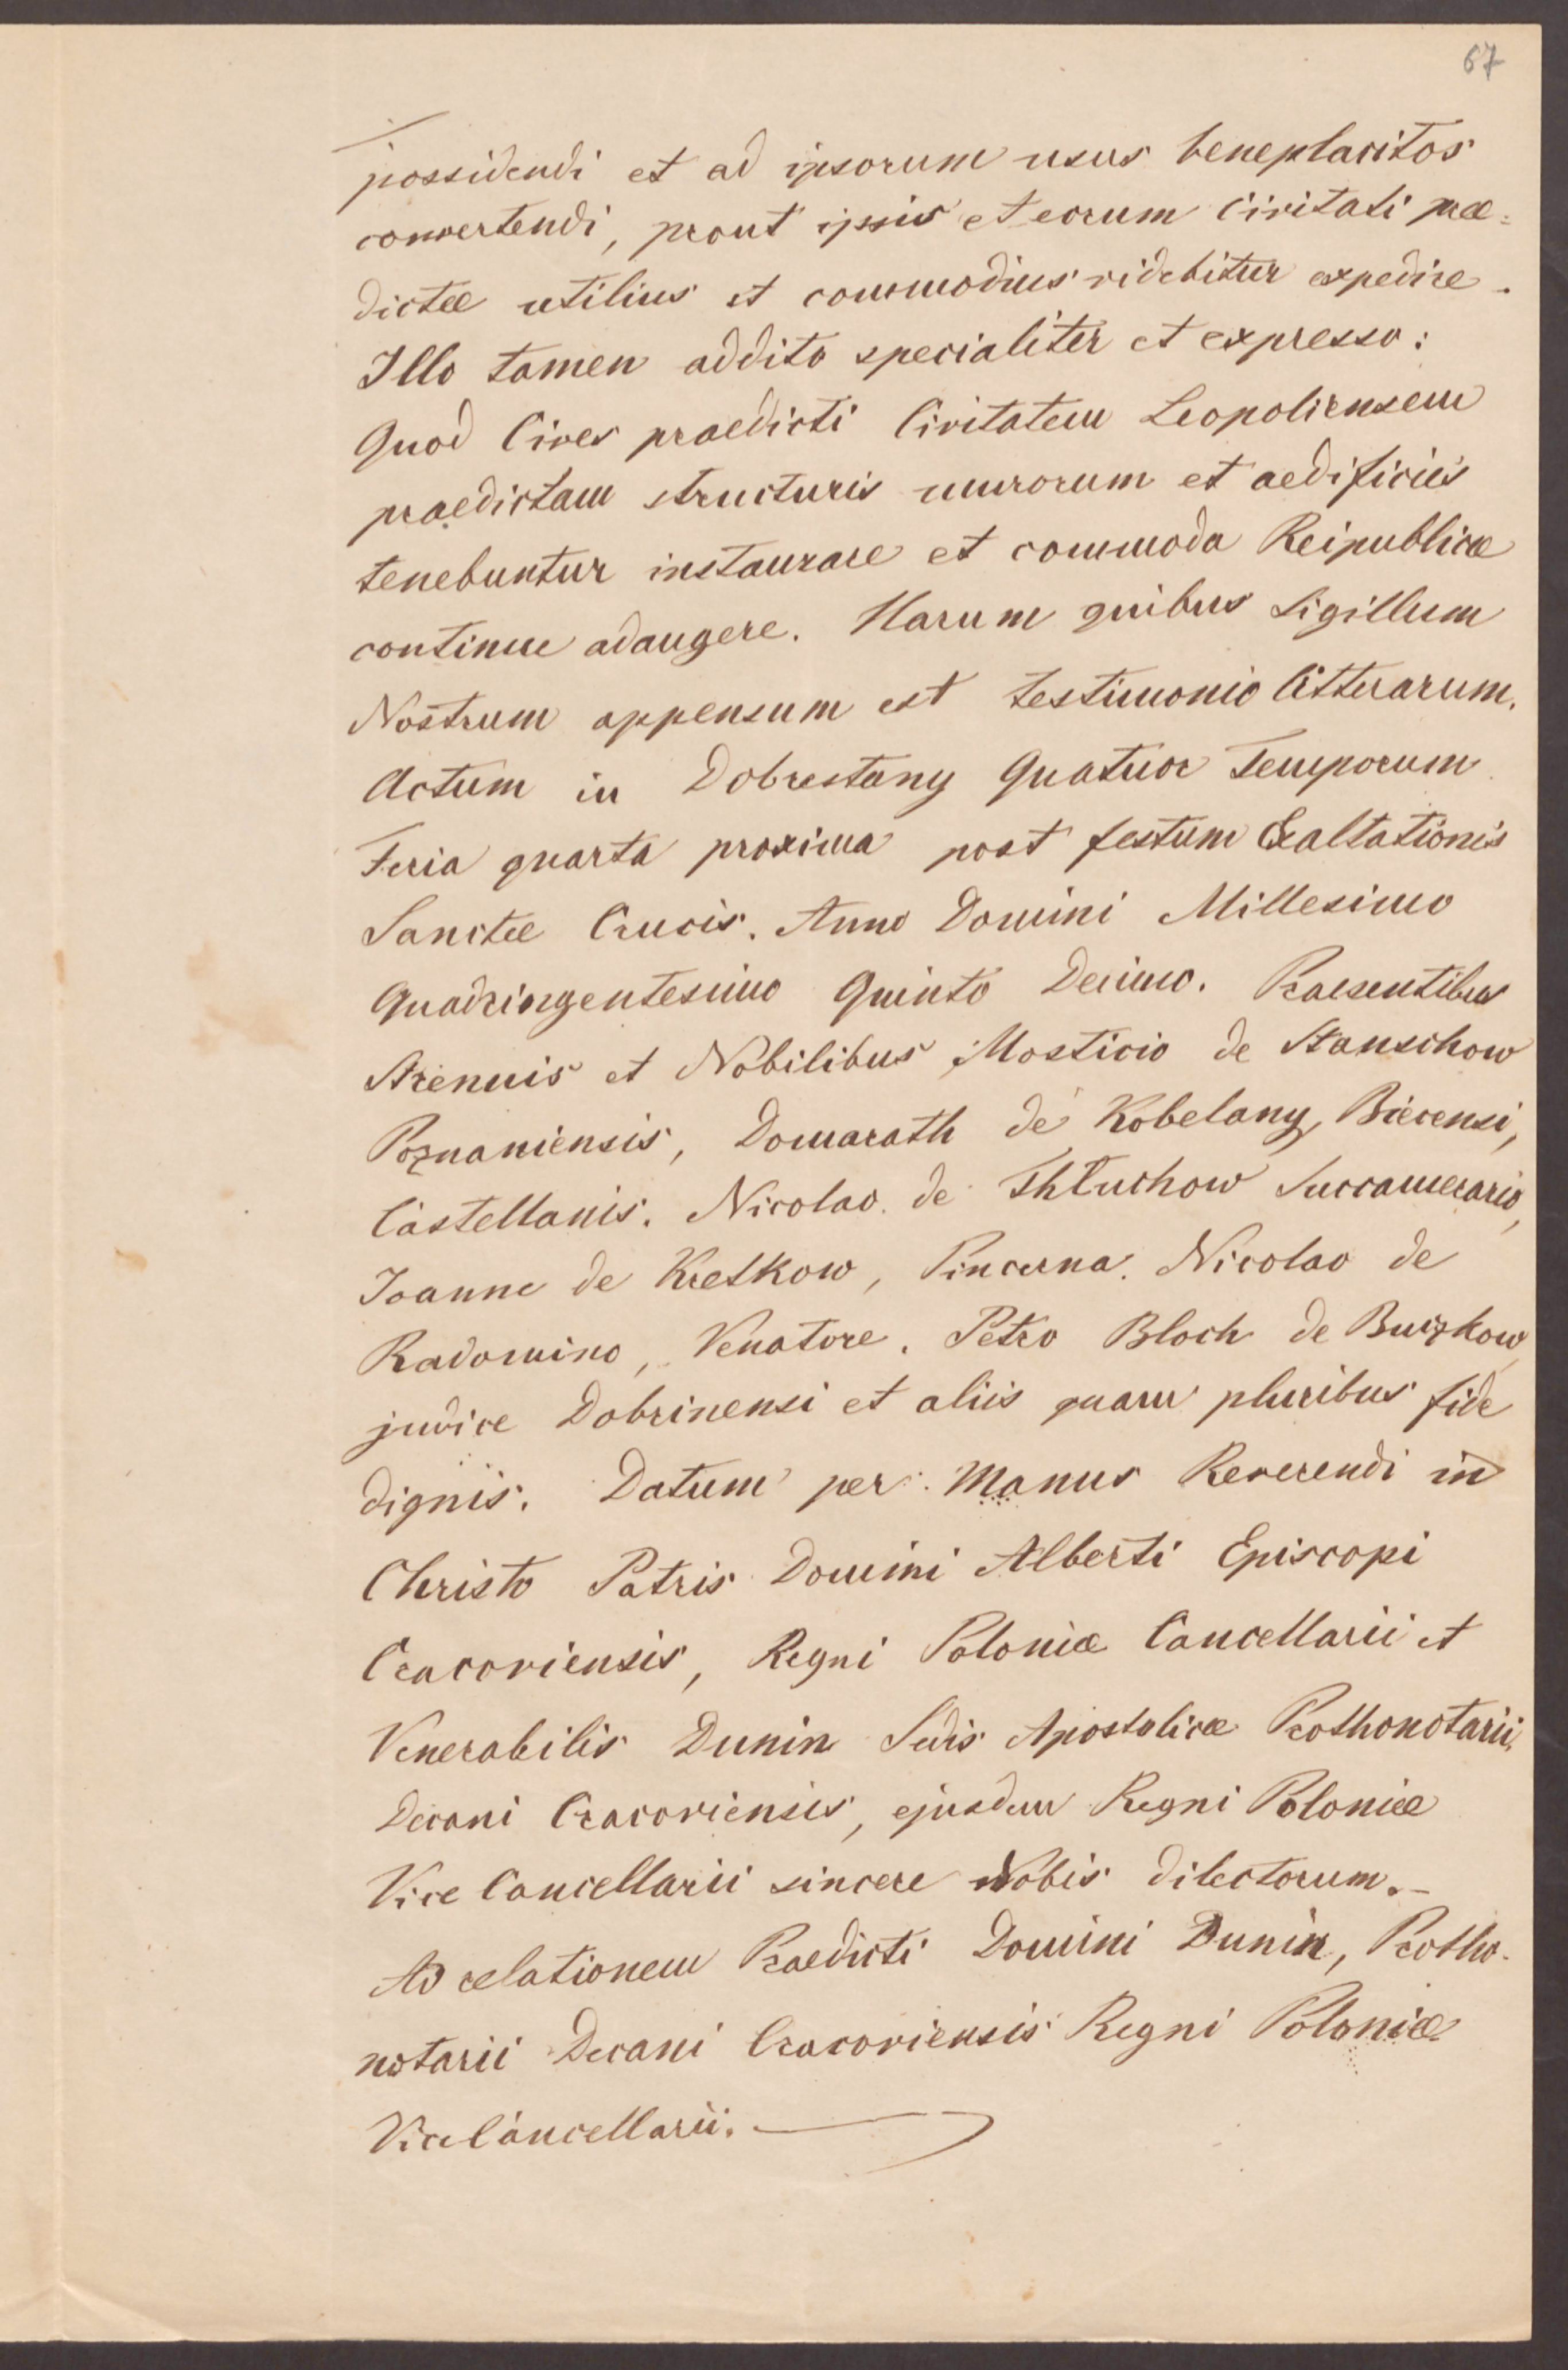 67
possidendi et ad ipsorum usus beneplacitos
convertendi, prout ipsis et eorum Civitati præ=
dictæ utilius et commodius videbitur expedire.
Illo tamen addito specialiter et expresso:
Quod Cives praedicti Civitatem Leopoliensem
praedictam structuris murorum et aedificiis
tenebuntur instaurare et commoda Reipublicæ
continue adaugere. Harum quibus Sigillum
Nostrum appensum est testimonio litterarum.
Actum in Dobrestany Quatuor Temporum
Feria quarta proxima post festum Exaltationis
Sanctæ Crucis. Anno Domini Millesimo
Quadringentesimo Quinto Decimo. Praesentibus
Strenuis et Nobilibus Mosticio de Stanschow
Poznaniensis, Domarath de Kobelany, Biecensi,
Castellanis. Nicolao de Thluchow Succamerario,
Joanne de Kretkow, Pincerna. Nicolao de
Radomino, Venatore. Petro Bloch de
judice Dobrinensi et aliis quam pluribus fide
dignis. Datum per Manus Reverendi in
Christo Patris Domini Alberti Episcopi
Cracoviensis, Regni Poloniæ Cancellarii et
Venerabilis Dunin Sedis Apostolicæ Prothonotarii,
Decani Cracoviensis, ejusdem Regni Poloniæ
Vice Cancellarii sincere Nobis dilectorum.-
Ad relationem Praedicti Domini Dunin, Protho-
notarii Decani Cracoviensis Regni Poloniæ
ViceCancellarii.